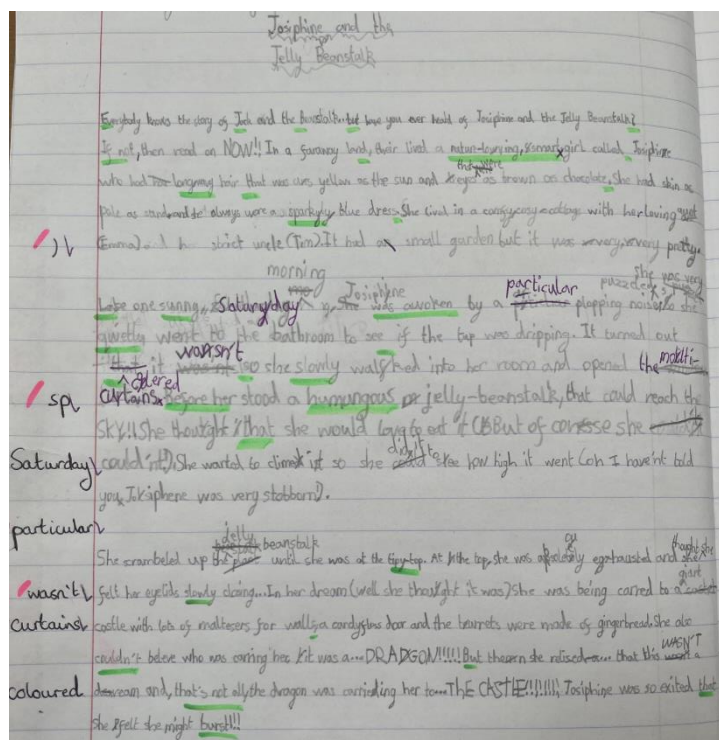 Josiphine and the
Jelly Beanstalk
Everybody knows the story of Jack and the Beanstalk...but have you ever heard of Josiphine and the Jelly Beanstalk?
If not, then read on NOW!! In a faraway land, their lived a nature-loving, smart girl called Josiphine
who had long hair that was as yellow as the sun and eyes as brown as chocolate. She had skin as
pale as sand and she always wore a sparkyly blue dress. She lived in a cosy cottage with her loving aunt
(Emma) and her strict uncle (Tom). It had a small garden but it was very, very pretty.
Late one sunny, Saturday morning, Josiphine was awoken by a particular plopping noise, she was very puzzeled so she
quietly went to the bathroom to see if the tap was dripping. It turned out
that it wasn't so she slowly walked into her room and opened the multi-
spl
colered curtains. Before her stood a humungous jelly-beanstalk, that could reach the
SKY!! She thought that she would long to eat it (But of corse she
Saturday couldn't!). She wanted to climb it so she did to see how high it went (oh I have'nt told
you, Josiphene was very stobborn!).
particular
She crambeled up the jelly beanstalk until she was at the tipy-top. At the top, she was absolutely exhausted and she thought she
wasn't felt her eyelids slowly closing...In her dream (well she thought it was) she was being carred to a giant
curtains castle with lots of maltesers for walls, a candyfloss door and the turrets were made of gingerbread. She also
couldn't beleve who was carring her. It was a...DRADGON!!!!! But then she relised... that this WASN'T a
coloured dream and, that's not all, the dragon was carrieding her to...THE CASTLE!!!!!!! Josiphine was so exited that
she felt she might burst!!!